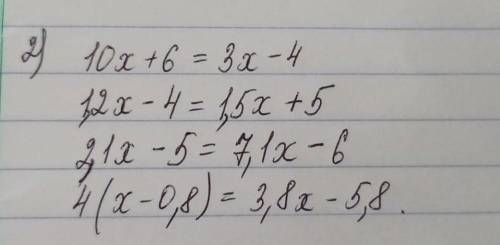 2) 10x + 6 = 3x - 4
1,2x - 4 = 1,5x + 5
2,1x - 5 = 7,1x - 6
4(x - 0,8) = 3,8x - 5,8.